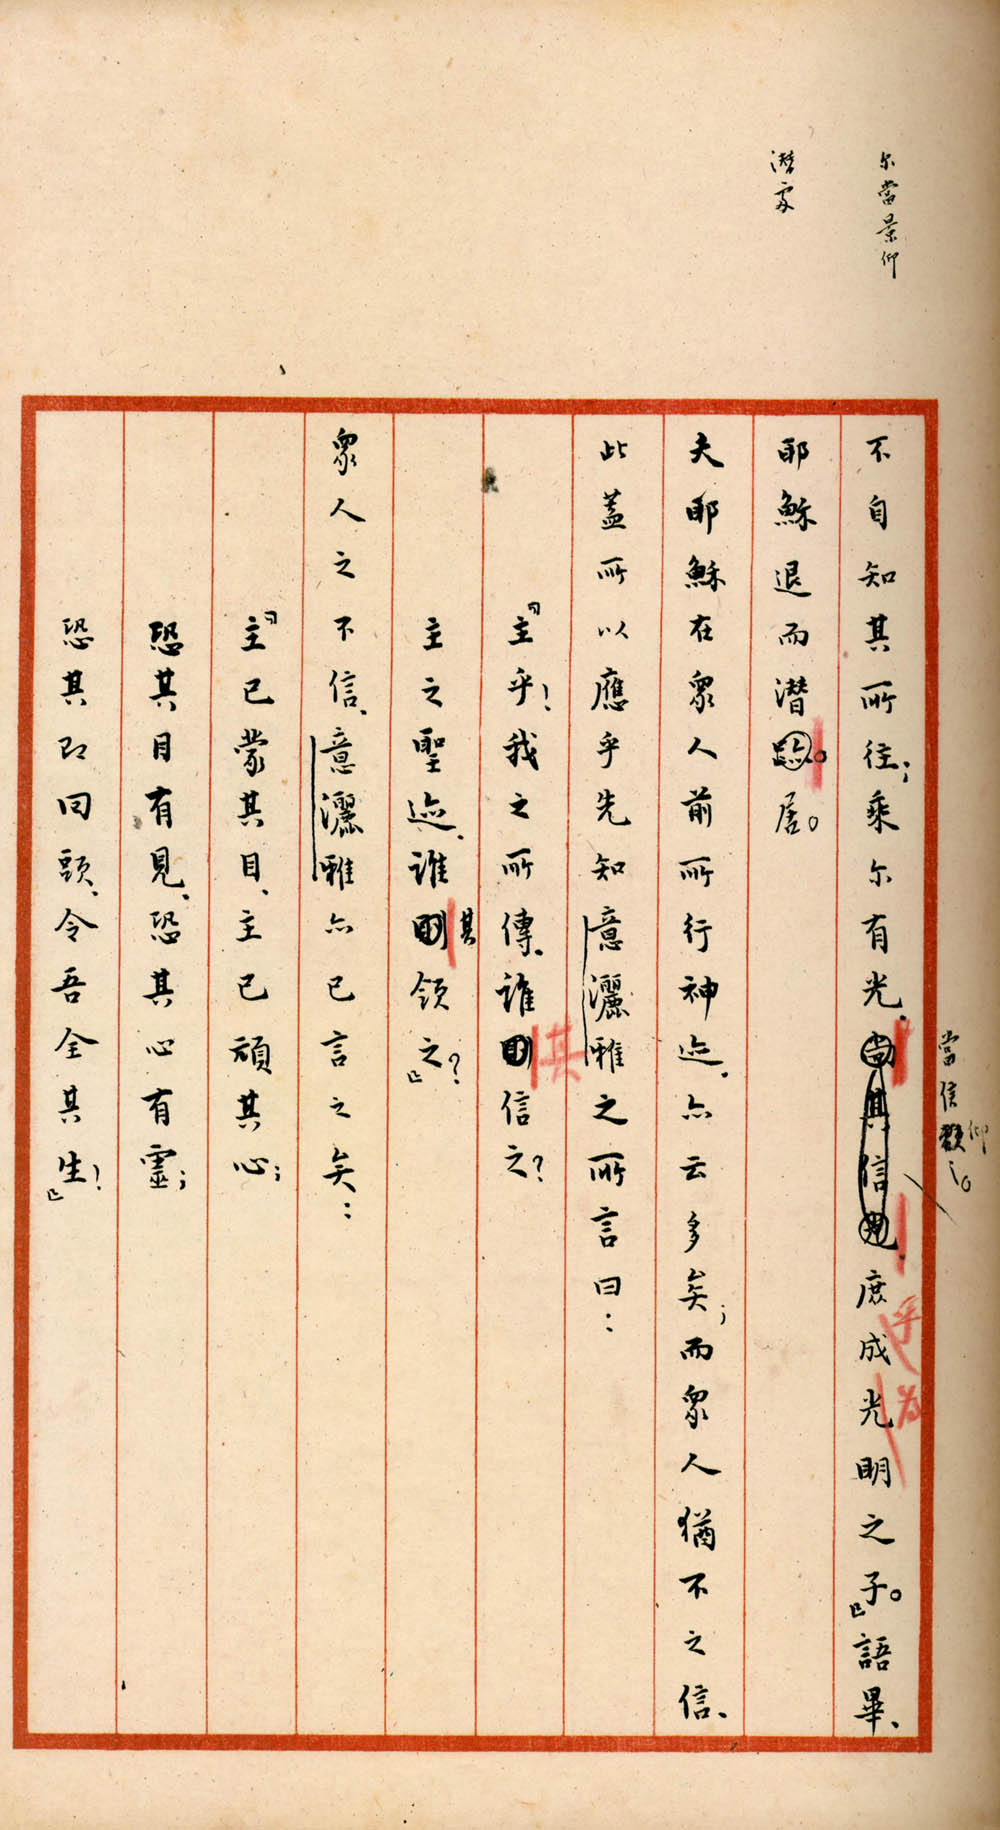 尔當景仰
潛處
當信
仰
之。
不自知其所往；乘尔有光、尚其信光、庶成光明之子。』語畢、
乎
為
耶穌退而潛跡。居。
夫耶穌在眾人前所行神迹、亦云多矣；而眾人猶不之信、
此蓋所以應乎先知意灑雅之所言曰：
『主乎！我之所傳、誰信之？
其
主之聖迹、誰領之？』
其
眾人之不信、意灑雅亦已言之矣：
『主已蒙其目、主已頑其心；
恐其目有見、恐其心有靈；
恐其即回頭、令吾全其生！』